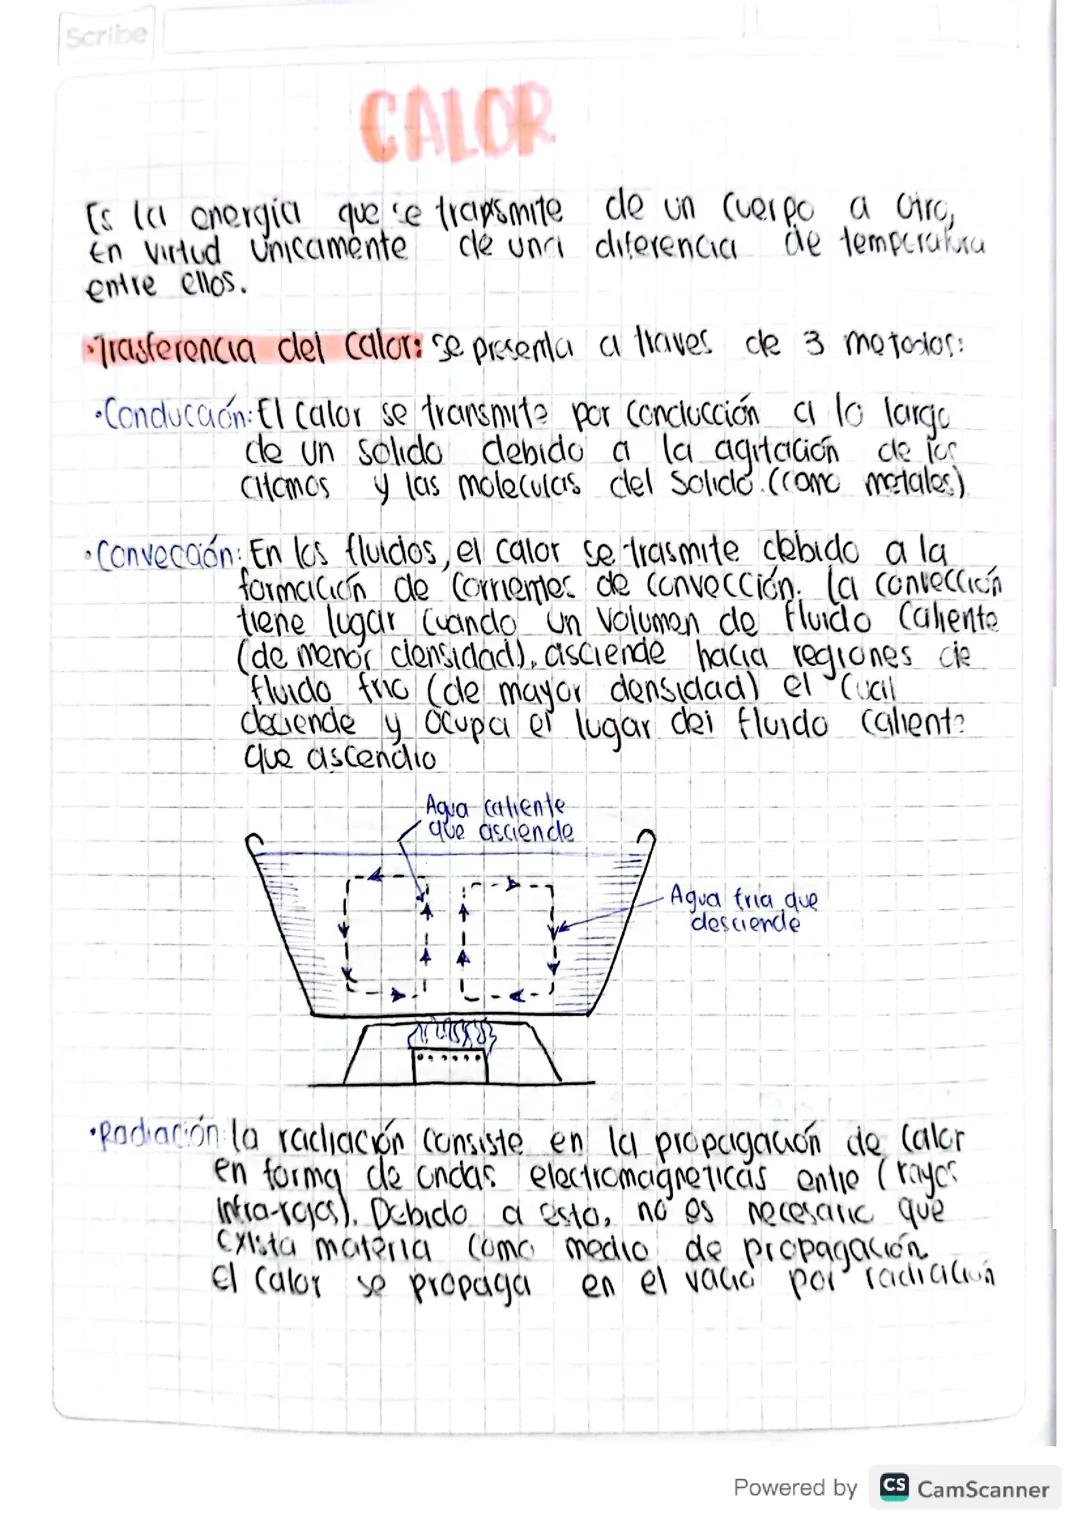 Scribe
CALOR
Es la energía que se transmite de un cuerpo a otro,
En virtud únicamente de una diferencia de temperatura
entre ellos.
·Trasferencia del Calor: se presenta a traves de 3 metodos:
·Conducción: El calor se transmite por conducción a lo largo
de un solido debido a la agitación de los
átomos y las moleculas del solido. (como metales)
·Convección: En los fluidos, el calor se trasmite debido a la
formación de corrientes de convección. La convección
tiene lugar cuando un volumen de fluido caliente
(de menor densidad), asciende hacia regiones de
fluido frio (de mayor densidad) el cual
desciende y ocupa el lugar del fluido caliente
que ascendio
Agua caliente
que asciende
Agua fria que
desciende
·Radiación: la radiación consiste en la propagación de calor
en forma de ondas electromagneticas entre (rayos
infra-rojos). Debido a esto, no es necesario que
exista materia como medio de propagación
el calor se propaga en el vacio por radiación
Powered by CS CamScanner